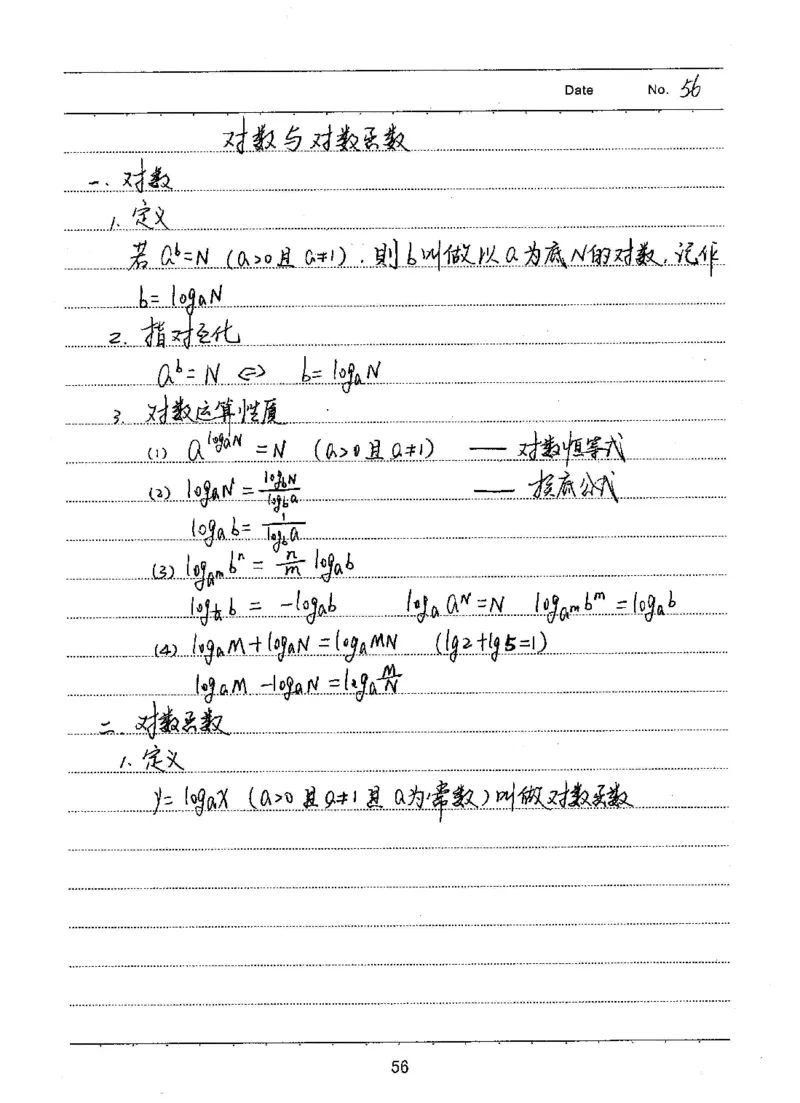 Date No. 56
对数与对数函数
一.对数
1.定义
若 a^b=N (a>0且 a≠1),则 b叫做以 a为底 N的对数,记作
b=log_a N
2. 指对互化
a^b=N ⇔ b=log_a N
3. 对数运算性质
(1) a^{log_a N}=N (a>0且 a≠1) —— 对数恒等式
(2) log_a N=\frac{log_b N}{log_b a} —— 换底公式
log_a b=\frac{1}{log_b a}
(3) log_{a^m} b^n=\frac{n}{m} log_a b
log_{\frac{1}{a}} b=-log_a b log_a a^N=N log_{a^m} b^m=log_a b
(4) log_a M+log_a N=log_a MN (lg2+lg5=1)
log_a M-log_a N=log_a \frac{M}{N}
二.对数函数
1.定义
y=log_a x (a>0且 a≠1且 a为常数)叫做对数函数
56